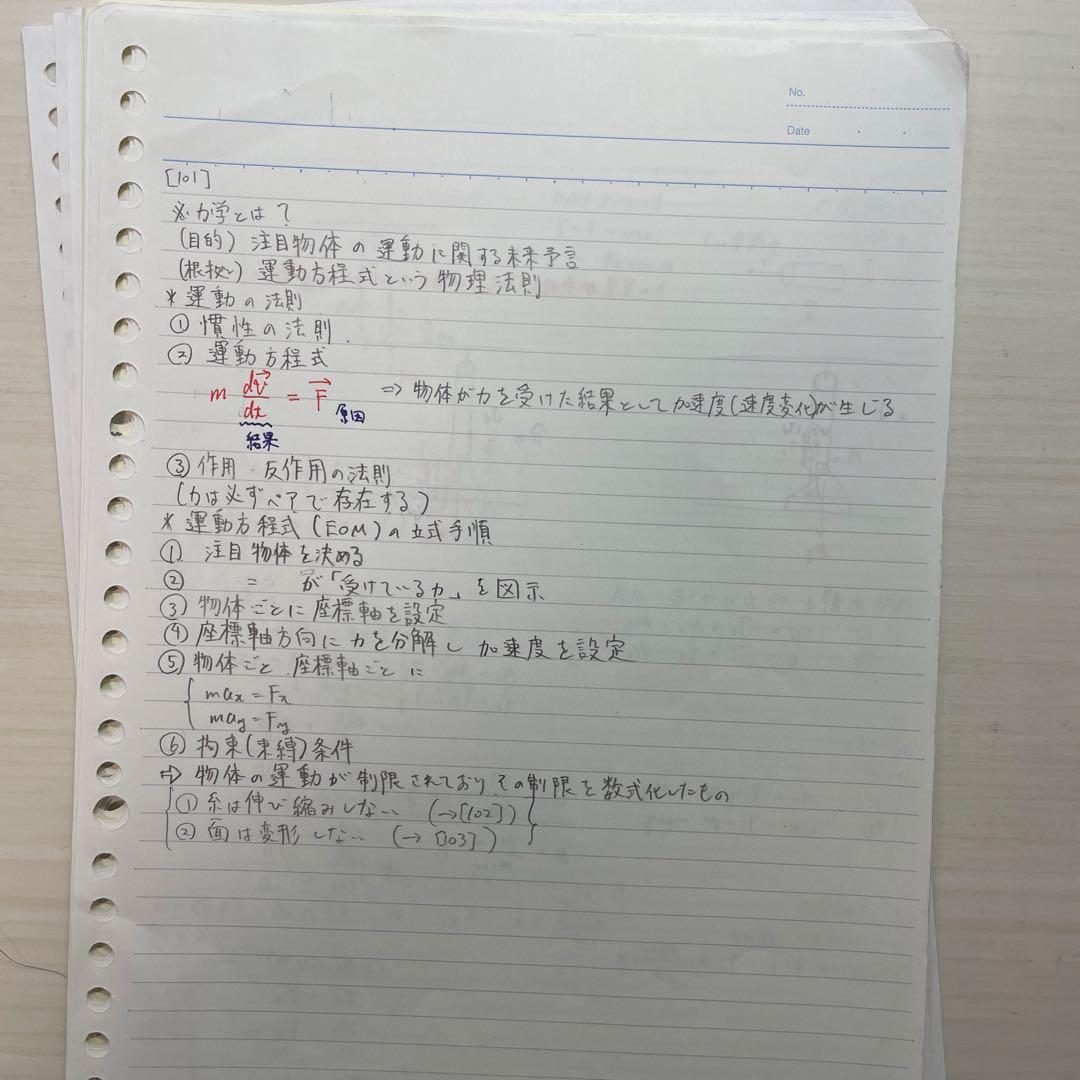 No.
Date
[101]
※力学とは?
(目的) 注目物体の運動に関する未来予言
(根拠) 運動方程式という物理法則
*運動の法則
① 慣性の法則.
② 運動方程式
m dv/dt = F ⇒ 物体が力を受けた結果として加速度(速度変化)が生じる
原因
結果
③ 作用・反作用の法則
(力は必ずペアで存在する)
* 運動方程式(EOM)の立式手順
① 注目物体を決める
② 〃 が「受けている力」を図示
③ 物体ごとに座標軸を設定
④ 座標軸方向に力を分解し加速度を設定
⑤ 物体ごと、座標軸ごとに
max = Fx
may = Fy
⑥ 拘束(束縛)条件
⇒ 物体の運動が制限されておりその制限を数式化したもの
① 糸は伸び縮みしない (→[102])
② 面は変形しない (→[103])